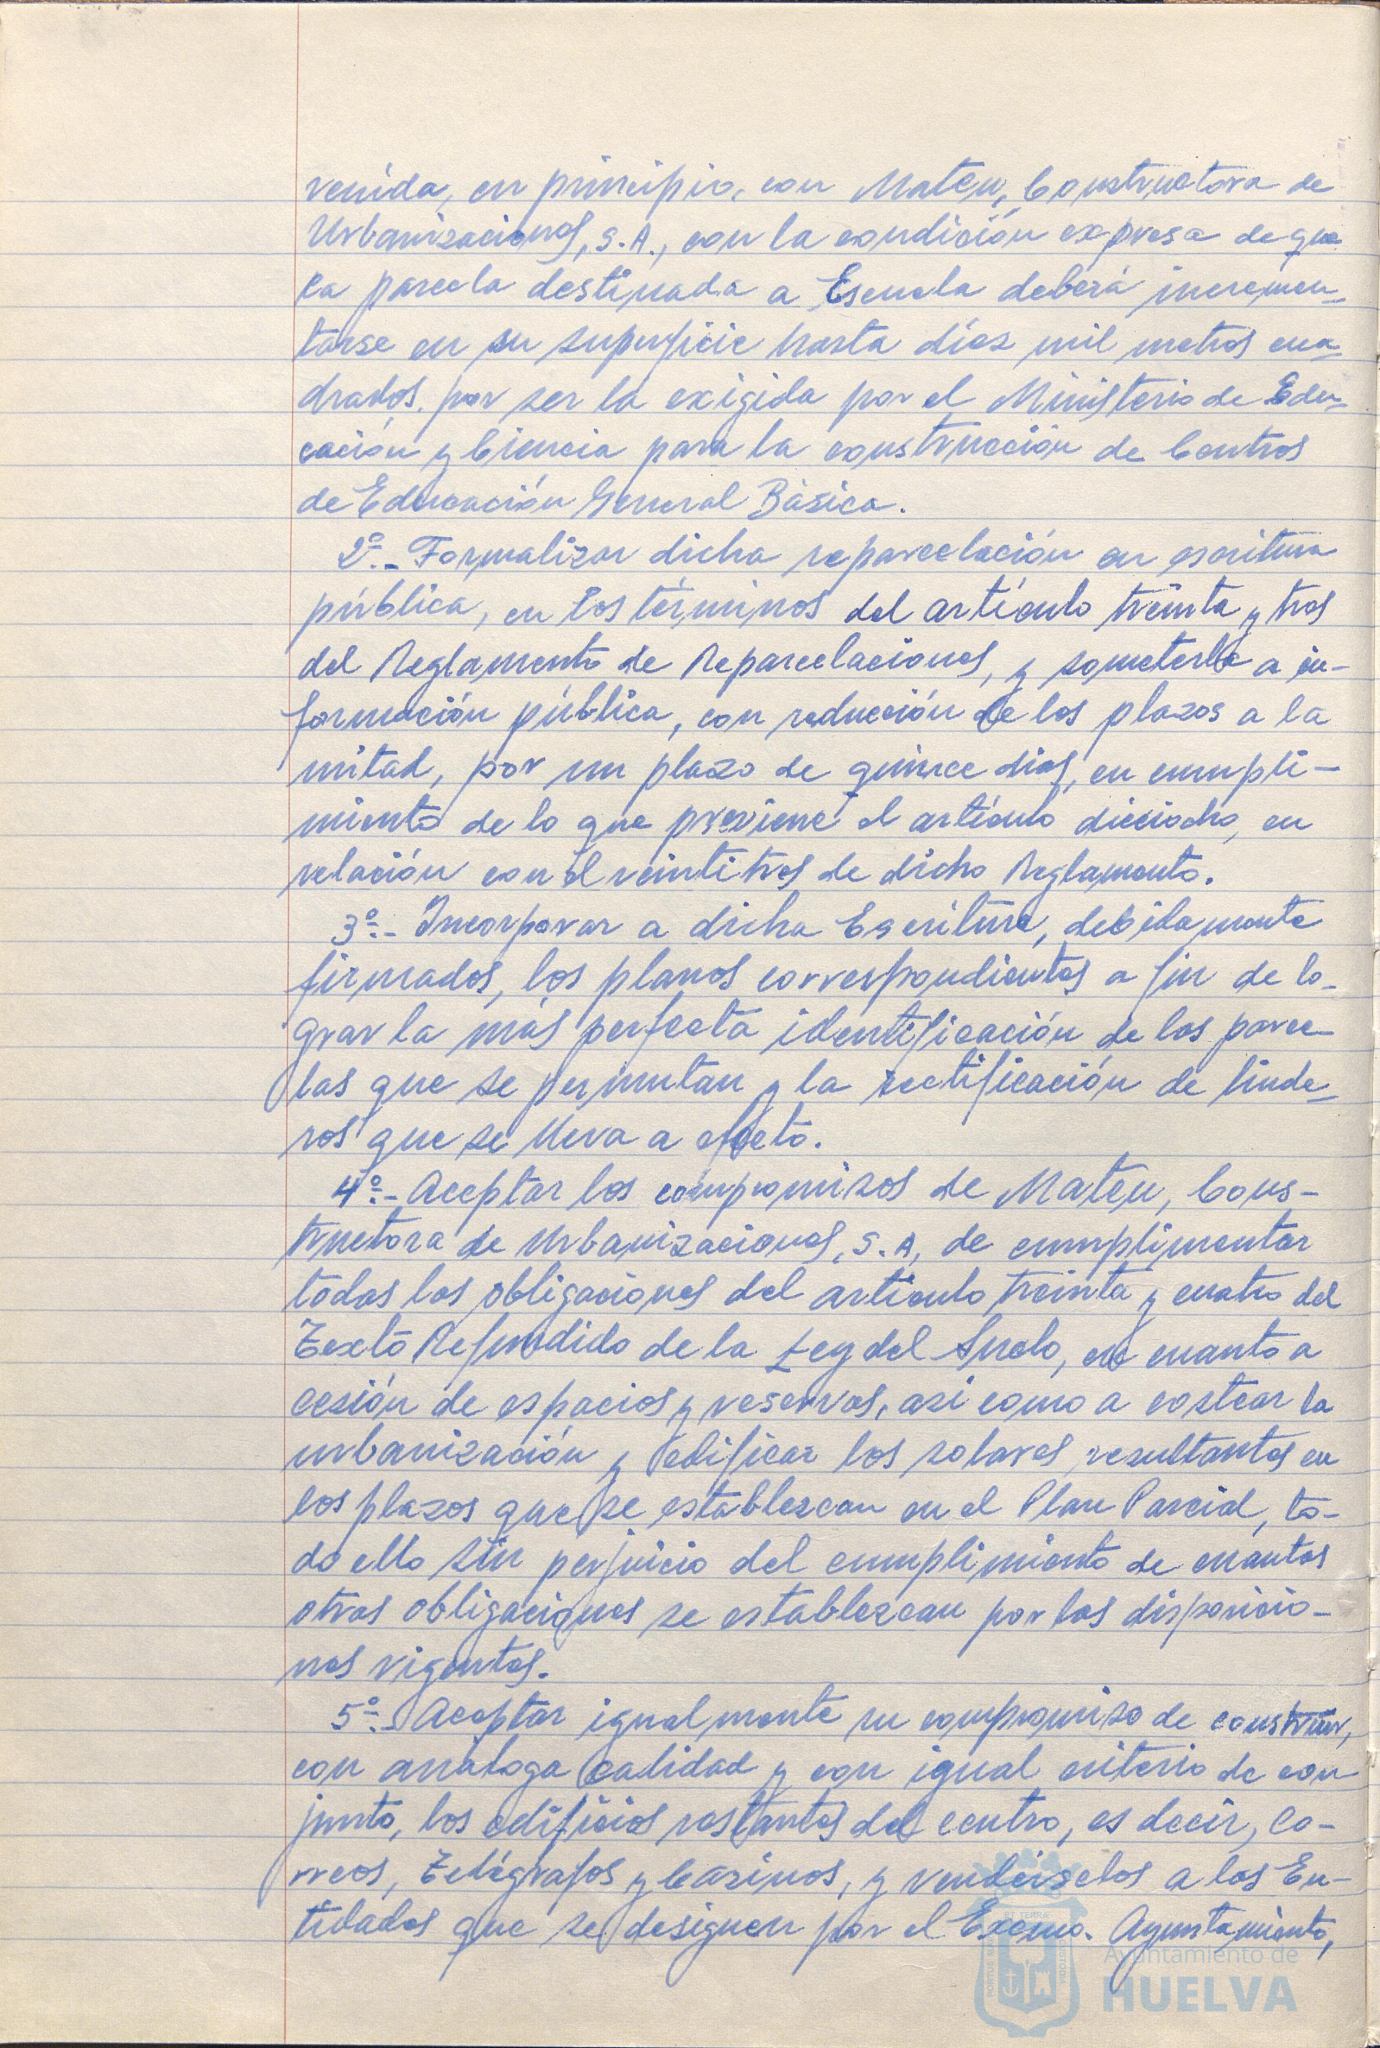 venida, en principio, con Mateu, Constructora de
Urbanizaciones, S.A., con la condición expresa de que
la parcela destinada a Escuela deberá incremen-
tarse en su superficie hasta diez mil metros cua-
drados, por ser la exigida por el Ministerio de Edu-
cación y Ciencia para la construcción de Centros
de Educación General Básica.
2º.- Formalizar dicha reparcelación en escritura
pública, en los términos del artículo treinta y tres
del Reglamento de Reparcelaciones, y someterla a in-
formación pública, con reducción de los plazos a la
mitad, por un plazo de quince días, en cumpli-
miento de lo que previene el artículo dieciocho, en
relación con el veintitres de dicho Reglamento.
3º.- Incorporar a dicha Escritura, debidamente
firmados, los planos correspondientes a fin de lo-
grar la más perfecta identificación de las parce-
las que se permutan y la rectificación de linde-
ros que se lleva a efecto.
4º.- Aceptar los compromisos de Mateu, Cons-
tructora de Urbanizaciones, S.A, de cumplimentar
todas las obligaciones del artículo treinta y cuatro del
Texto Refundido de la Ley del Suelo, en cuanto a
cesión de espacios y reservas, asi como a costear la
urbanización y edificar los solares resultantes en
los plazos que se establezcan en el Plan Parcial, to-
do ello sin perjuicio del cumplimiento de cuantas
otras obligaciones se establezcan por las disposicio-
nes vigentes.
5º.- Aceptar igualmente su compromiso de construir,
con análoga calidad y con igual criterio de con
junto, los edificios restantes del centro, es decir, Co-
rreos, Telégrafos y Casinos, y vendérselos a las En-
tidades que se designen por el Excmo. Ayuntamiento,
Ayuntamiento de
HUELVA